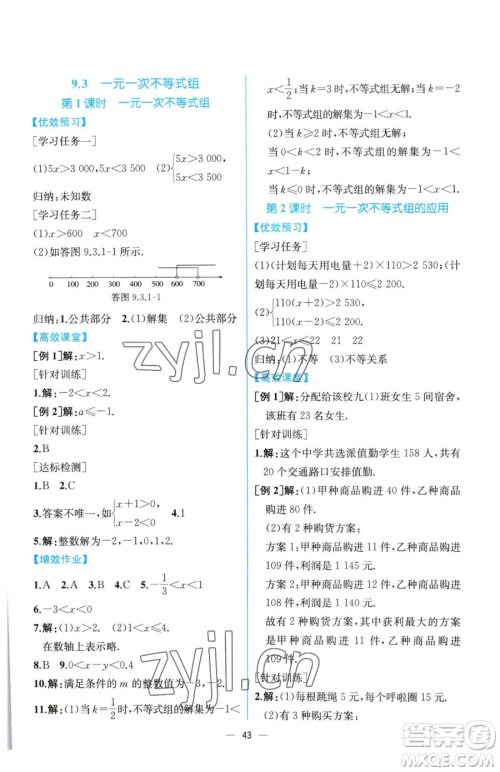 9.3 一元一次不等式组
第1课时 一元一次不等式组
【优效预习】
[学习任务一]
(1)5x>3 000,5x<3 500 (2){5x>3 000, 5x<3 500
归纳:未知数
[学习任务二]
(1)x>600 x<700
(2)如答图9.3.1-1所示.
0 100 200 300 400 500 600 700
答图9.3.1-1
归纳:1.公共部分 2.(1)解集 (2)公共部分
【高效课堂】
[例1]解:x>1.
[针对训练]
1.解:-2<x<2.
[例2]解:a≤-1.
[针对训练]
2.B
[达标检测]
1.B 2.C
3.答案不唯一,如{x+1>0, x-2<0 4.1
5.解:整数解为-1,0,1,2.
【增效作业】
1.A 2.A 3.D 4.B 5.-1/3<x<1
6.-3<x<0
7.解:(1)x>2. (2)1<x≤4.
在数轴上表示略.
8.B 9.0<x-y<0.4
10.解:满足条件的m的整数值为-3,-2.
11.解:(1)当k=1/2时,不等式组的解集为-1<
x<1/2;当k=3时,不等式组无解;当k=-2
时,不等式组的解集为-1<x<1.
(2)当k≥2时,不等式组无解;
当0<k<2时,不等式组的解集为-1<
x<1-k;
当k≤0时,不等式组的解集为-1<x<1.
第2课时 一元一次不等式组的应用
【优效预习】
[学习任务]
(1)(计划每天用电量+2)×110>2 530,
(计划每天用电量-2)×110≤2 200
(2){110(x+2)>2 530, 110(x-2)≤2 200.
(3)21<x≤22 21 22
归纳:(1)不等 (3)不等关系
【高效课堂】
[例1]解:分配给该校九(1)班女生5间宿舍,
该班有23名女生.
[针对训练]
1.解:这个中学共选派值勤学生158人,共有
20个交通路口安排值勤.
[例2]解:(1)甲种商品购进40件,乙种商品
购进80件.
(2)有2种购货方案:
方案1:甲种商品购进11件,乙种商品购进
109件,利润是1 145元.
方案2:甲种商品购进12件,乙种商品购进
108件,利润是1 140元.
故有2种购货方案,其中获利最大的方案
是甲种商品购进11件,乙种商品购进
109件.
[针对训练]
2.解:(1)每根跳绳5元,每个呼啦圈15元.
(2)有3种购买方案:
43
zyjl.cn
zyjl.cn
答案圈
MXQE.COM